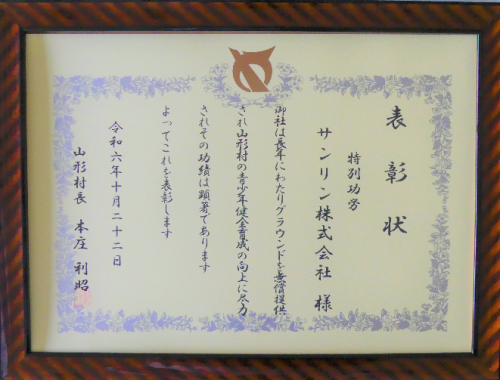 表彰状
特別功労
サンリン株式会社 様
御社は長年にわたりグラウンドを無償提供
され山形村の青少年健全育成の向上に尽力
されその功績は顕著であります
よってこれを表彰します
令和六年十月二十二日
山形村長 本庄 利昭